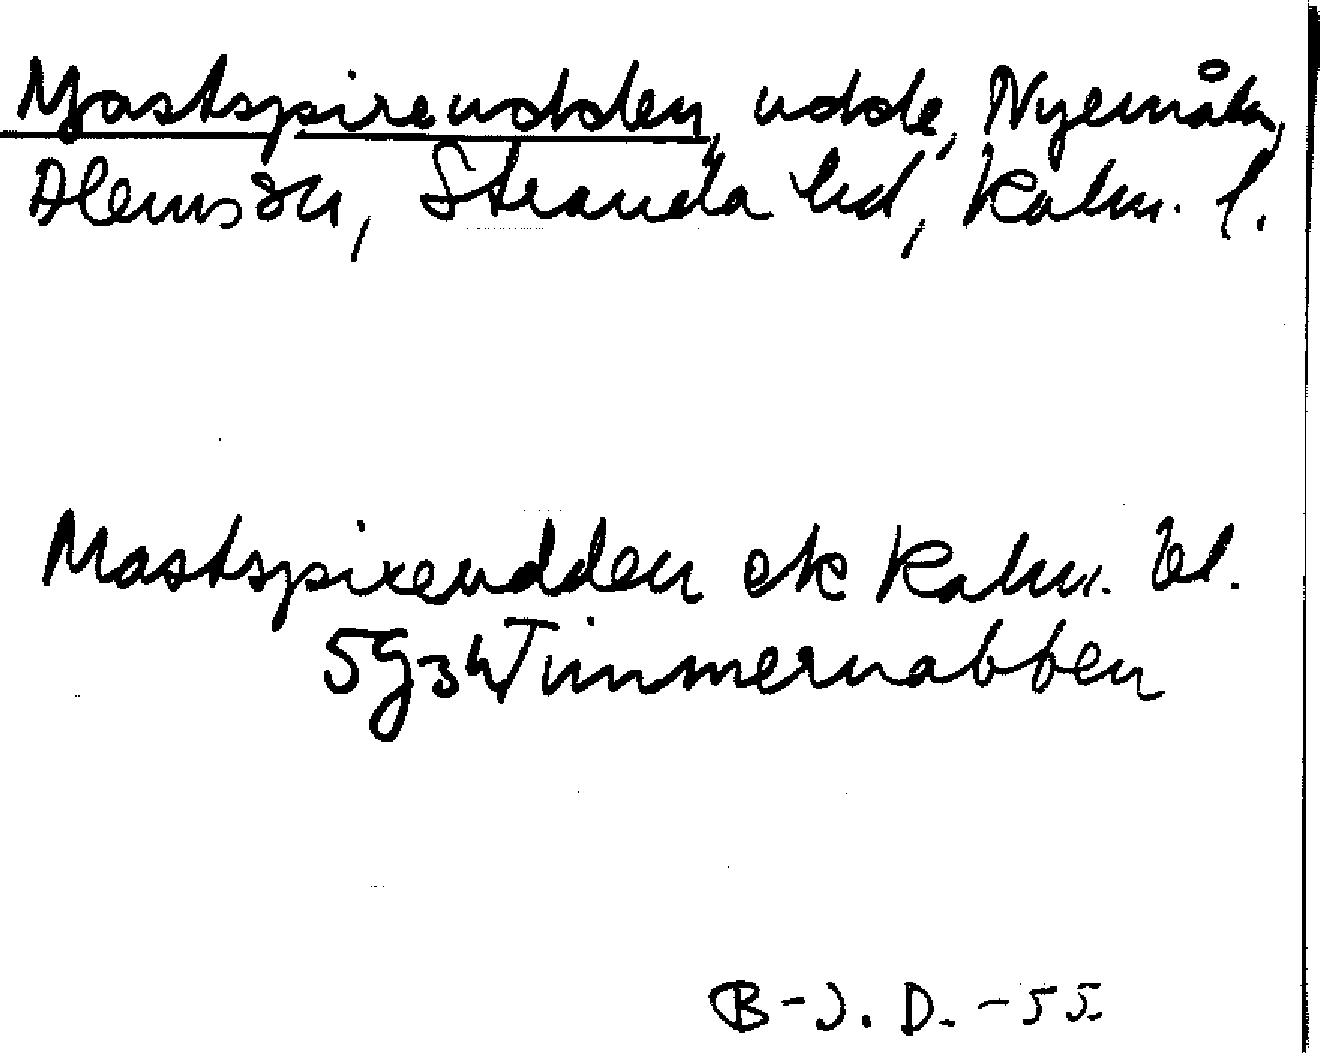 Mastspireudden, udde, Nyemåla,
Ålems sn, Stranda hd, Kalm. l.
Mastspireudden ek Kalm. bl.
5g3h Timmernabben
B-J. D. -55